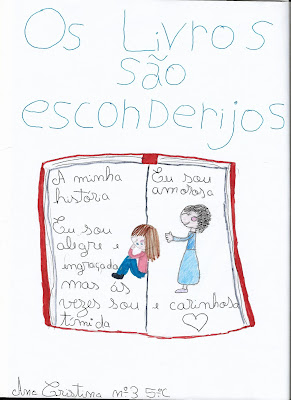 Os Livros
são
esconderijos
A minha
história
Eu sou
alegre e
engraçada
mas ás
vezes sou
tímida
Eu sou
amorosa
e carinhosa
Ana Cristina nº3 5ºC